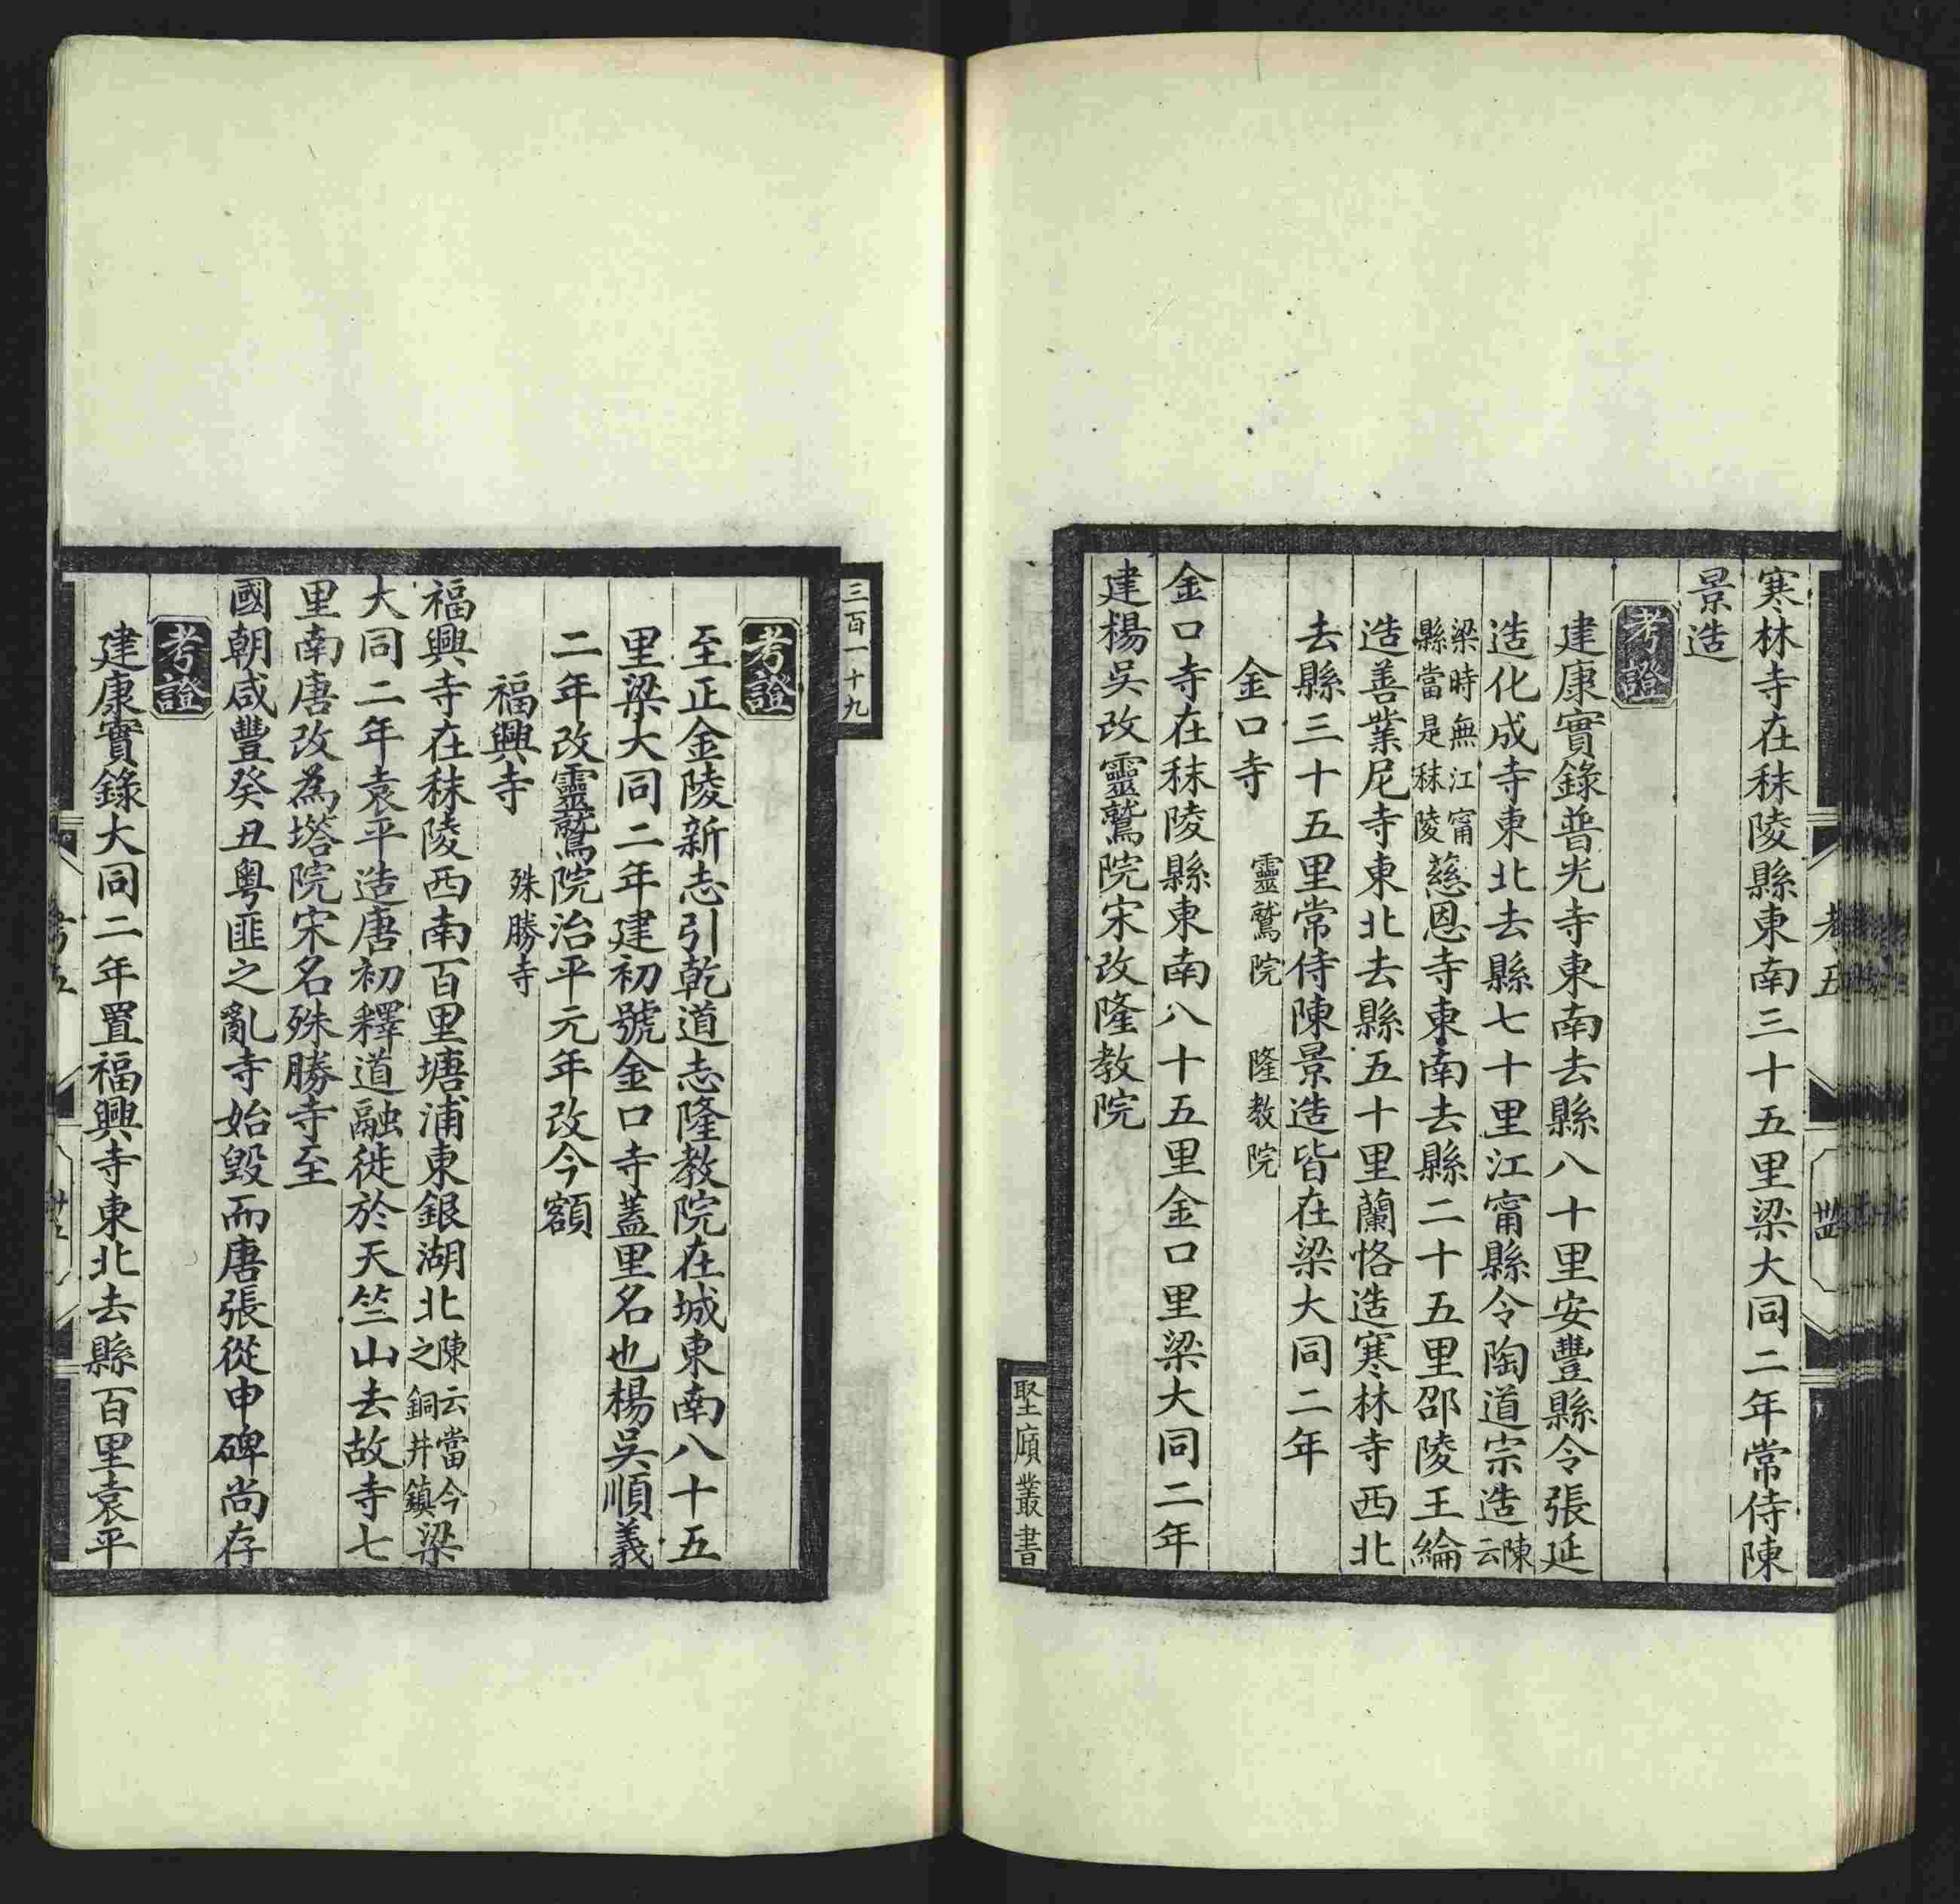 寒林寺在秣陵縣東南三十五里梁大同二年常侍陳
景造
考證
建康實錄普光寺東南去縣八十里安豐縣令張延
造化成寺東北去縣七十里江甯縣令陶道宗造陳云
梁時無江甯縣當是秣陵慈恩寺東南去縣二十五里邵陵王綸
造善業尼寺東北去縣五十里蘭恪造寒林寺西北
去縣三十五里常侍陳景造皆在梁大同二年
金口寺 靈鷲院 隆教院
金口寺在秣陵縣東南八十五里金口里梁大同二年
建楊吳改靈鷲院宋改隆教院
堅㢊叢書
三百一十九
考證
至正金陵新志引乾道志隆教院在城東南八十五
里梁大同二年建初號金口寺蓋里名也楊吳順義
二年改靈鷲院治平元年改今額
福興寺 殊勝寺
福興寺在秣陵西南百里塘浦東銀湖北陳云當今之銅井鎮梁
大同二年袁平造唐初釋道融徙於天竺山去故寺七
里南唐改為塔院宋名殊勝寺至
國朝咸豐癸丑粵匪之亂寺始毀而唐張從申碑尚存
考證
建康實錄大同二年置福興寺東北去縣百里袁平